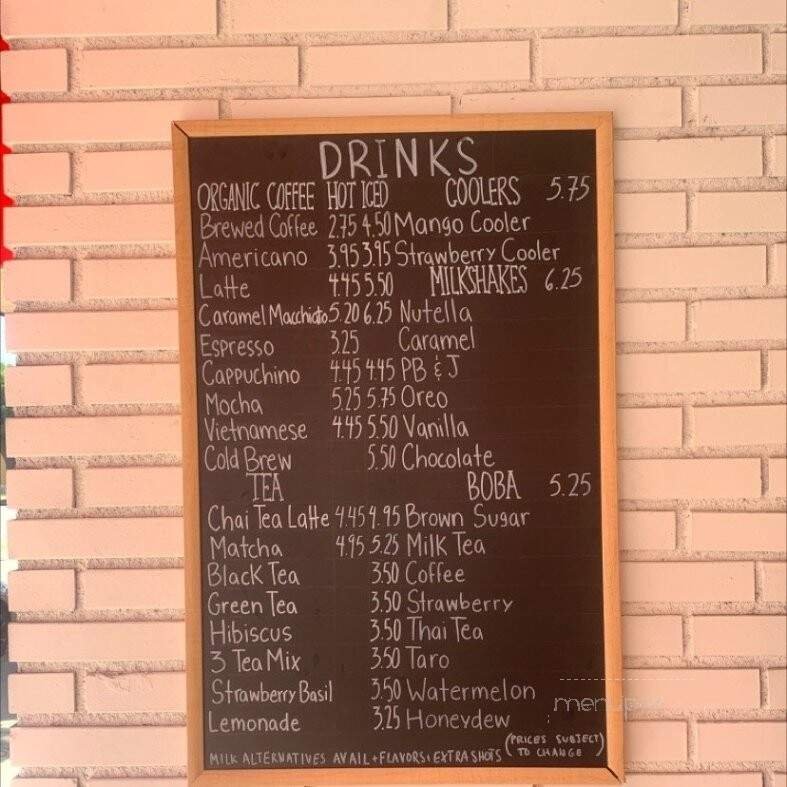 DRINKS
ORGANIC COFFEE HOT ICED COOLERS 5.75
Brewed Coffee 2.75 4.50 Mango Cooler
Americano 3.95 3.95 Strawberry Cooler
Latte 4.45 5.50 MILKSHAKES 6.25
Caramel Macchiato 5.20 6.25 Nutella
Espresso 3.25 Caramel
Cappuchino 4.45 4.45 PB & J
Mocha 5.25 5.75 Oreo
Vietnamese 4.45 5.50 Vanilla
Cold Brew 5.50 Chocolate
TEA BOBA 5.25
Chai Tea Latte 4.45 4.95 Brown Sugar
Matcha 4.95 5.25 Milk Tea
Black Tea 3.50 Coffee
Green Tea 3.50 Strawberry
Hibiscus 3.50 Thai Tea
3 Tea Mix 3.50 Taro
Strawberry Basil 3.50 Watermelon
Lemonade 3.25 Honeydew
(PRICES SUBJECT TO CHANGE)
MILK ALTERNATIVES AVAIL + FLAVORS + EXTRA SHOTS